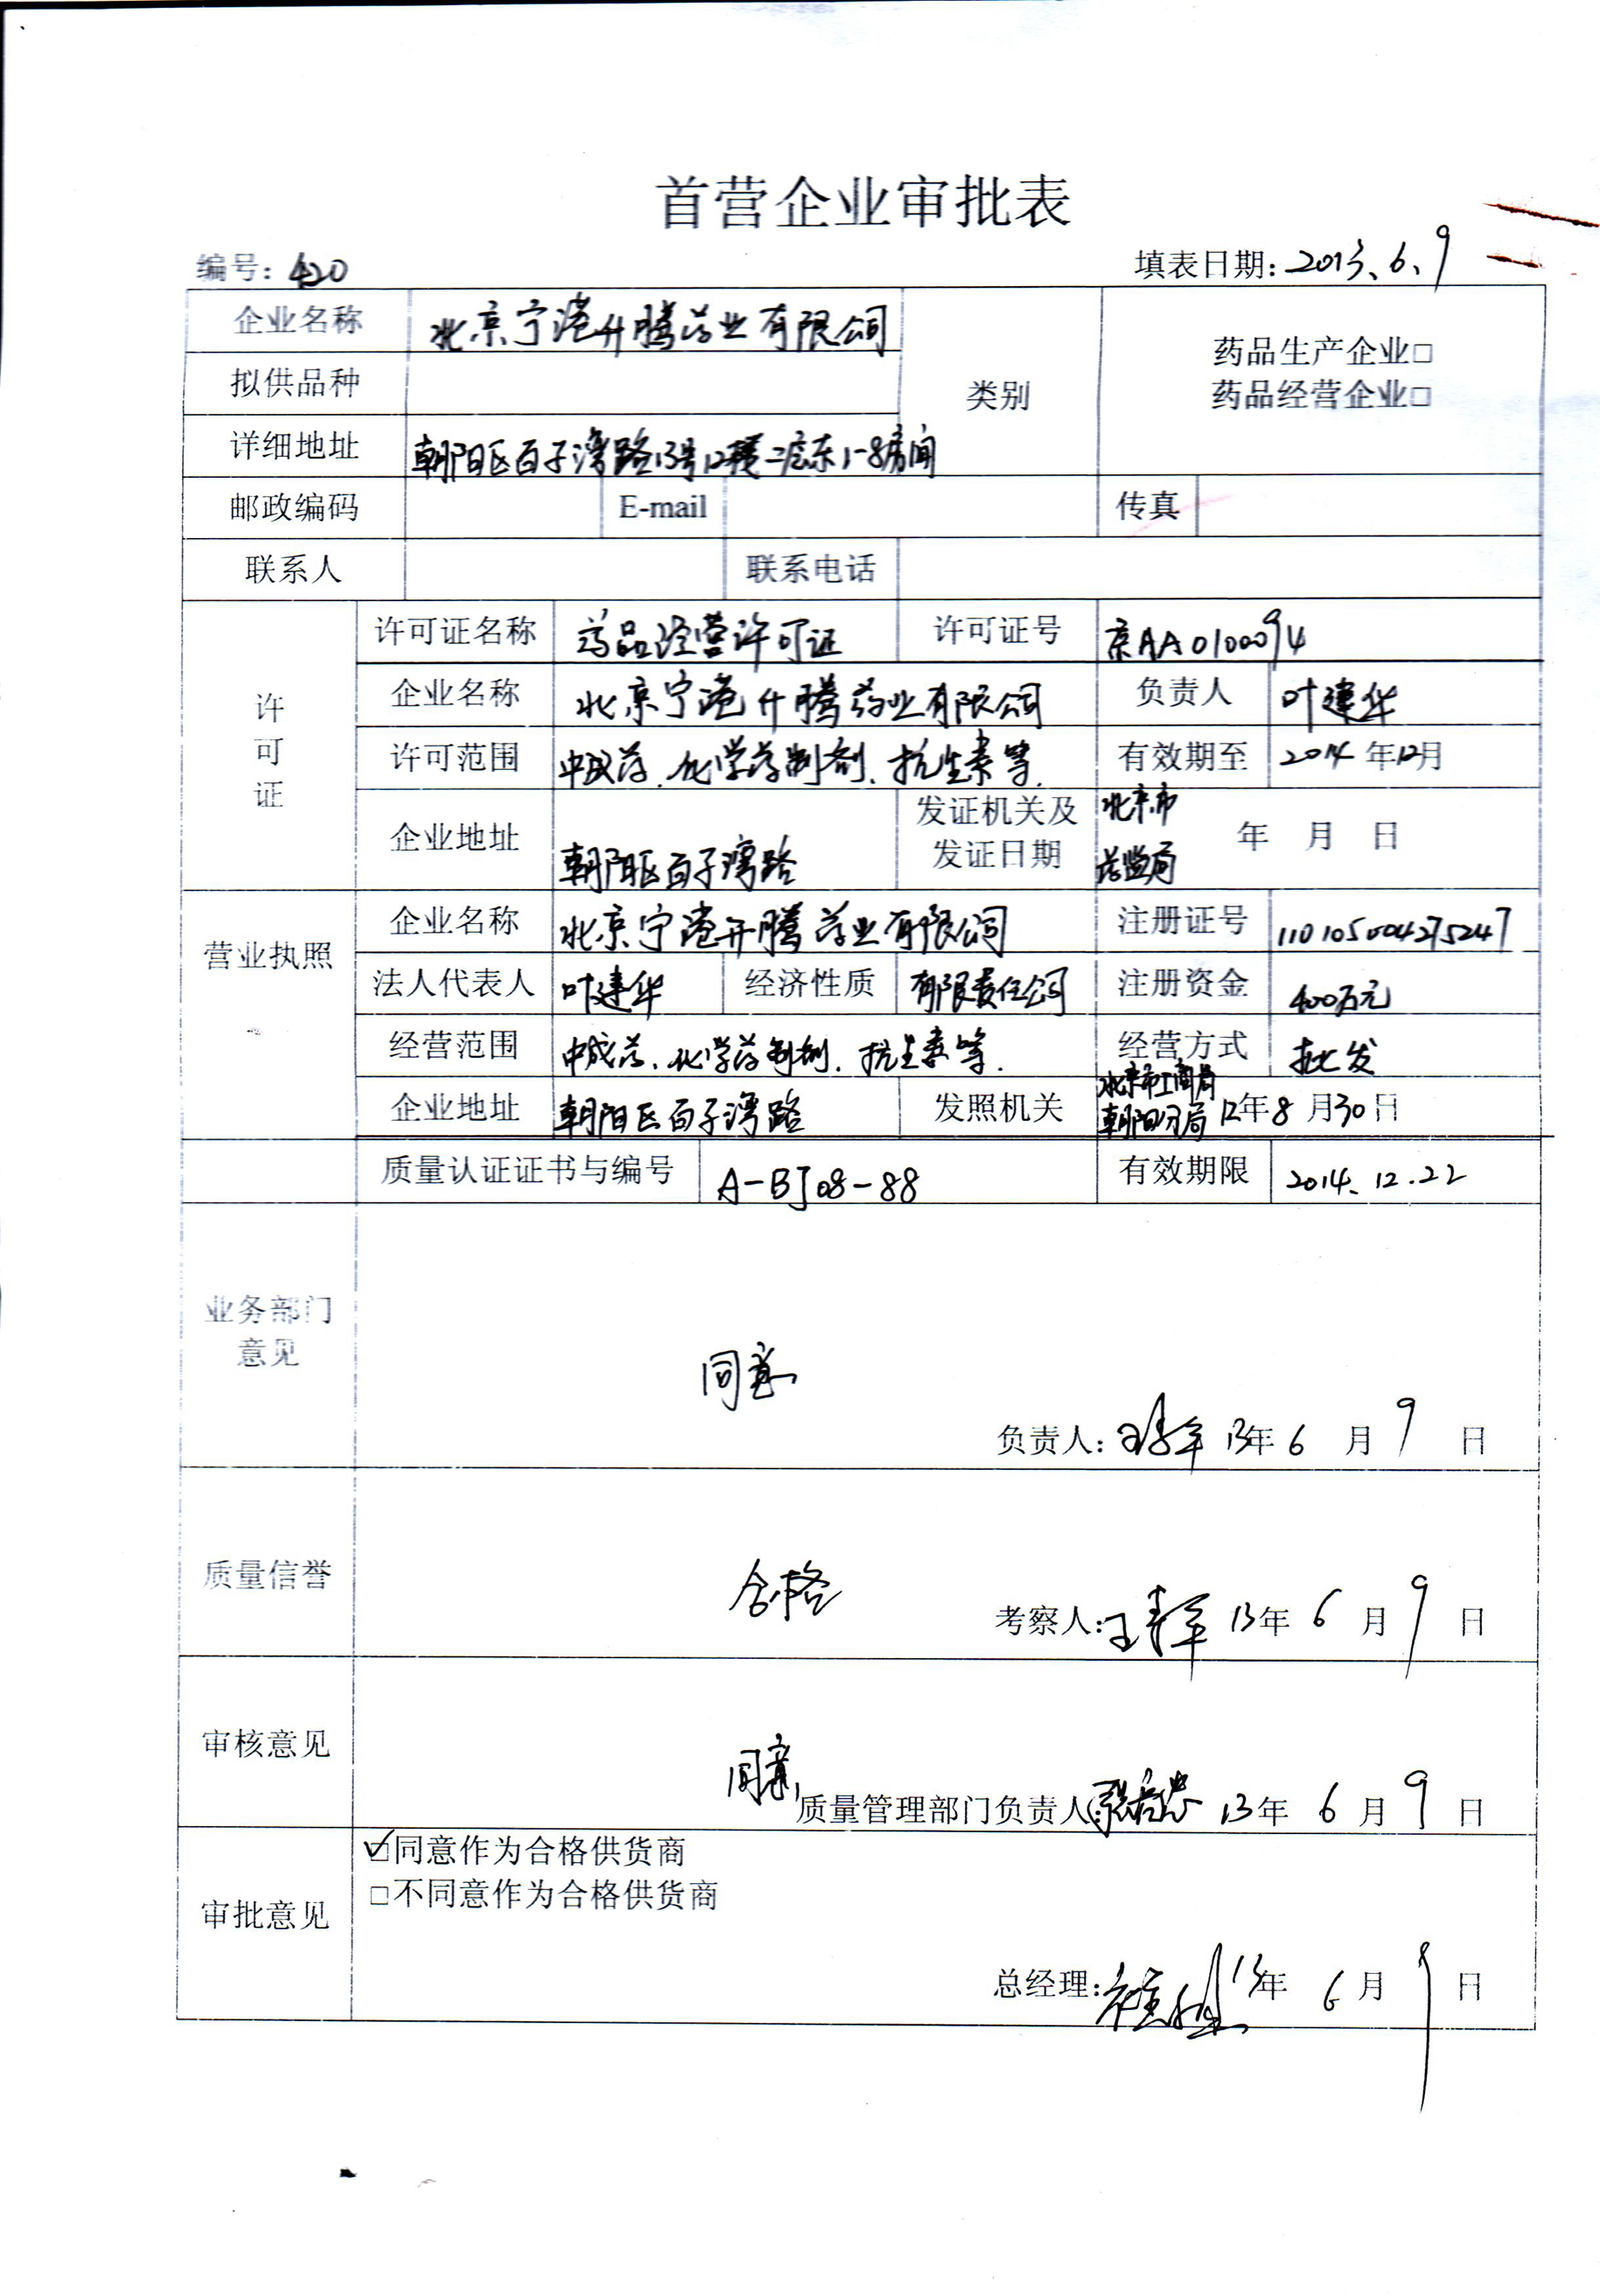 首营企业审批表
编号: 420 填表日期: 2013、6、9
企业名称 北京宁港升腾药业有限公司 类别 药品生产企业□
药品经营企业□
拟供品种
详细地址 朝阳区百子湾路13号12楼二层东1-8房间
邮政编码 E-mail 传真
联系人 联系电话
许可证 许可证名称 药品经营许可证 许可证号 京AA0100094
企业名称 北京宁港升腾药业有限公司 负责人 叶建华
许可范围 中成药、化学药制剂、抗生素等. 有效期至 2014 年12月
企业地址 朝阳区百子湾路 发证机关及发证日期 北京市药监局 年 月 日
营业执照 企业名称 北京宁港升腾药业有限公司 注册证号 110105004275247
法人代表人 叶建华 经济性质 有限责任公司 注册资金 400万元
经营范围 中成药、化学药制剂、抗生素等. 经营方式 批发
企业地址 朝阳区百子湾路 发照机关 北京市工商局朝阳分局 12年8月30日
质量认证证书与编号 A-BJ08-88 有效期限 2014.12.22
业务部门意见 同意
负责人: 13年6月9日
质量信誉 合格
考察人: 13年6月9日
审核意见 同意
质量管理部门负责人: 13年6月9日
审批意见 ☑同意作为合格供货商
□不同意作为合格供货商
总经理: 13年6月9日